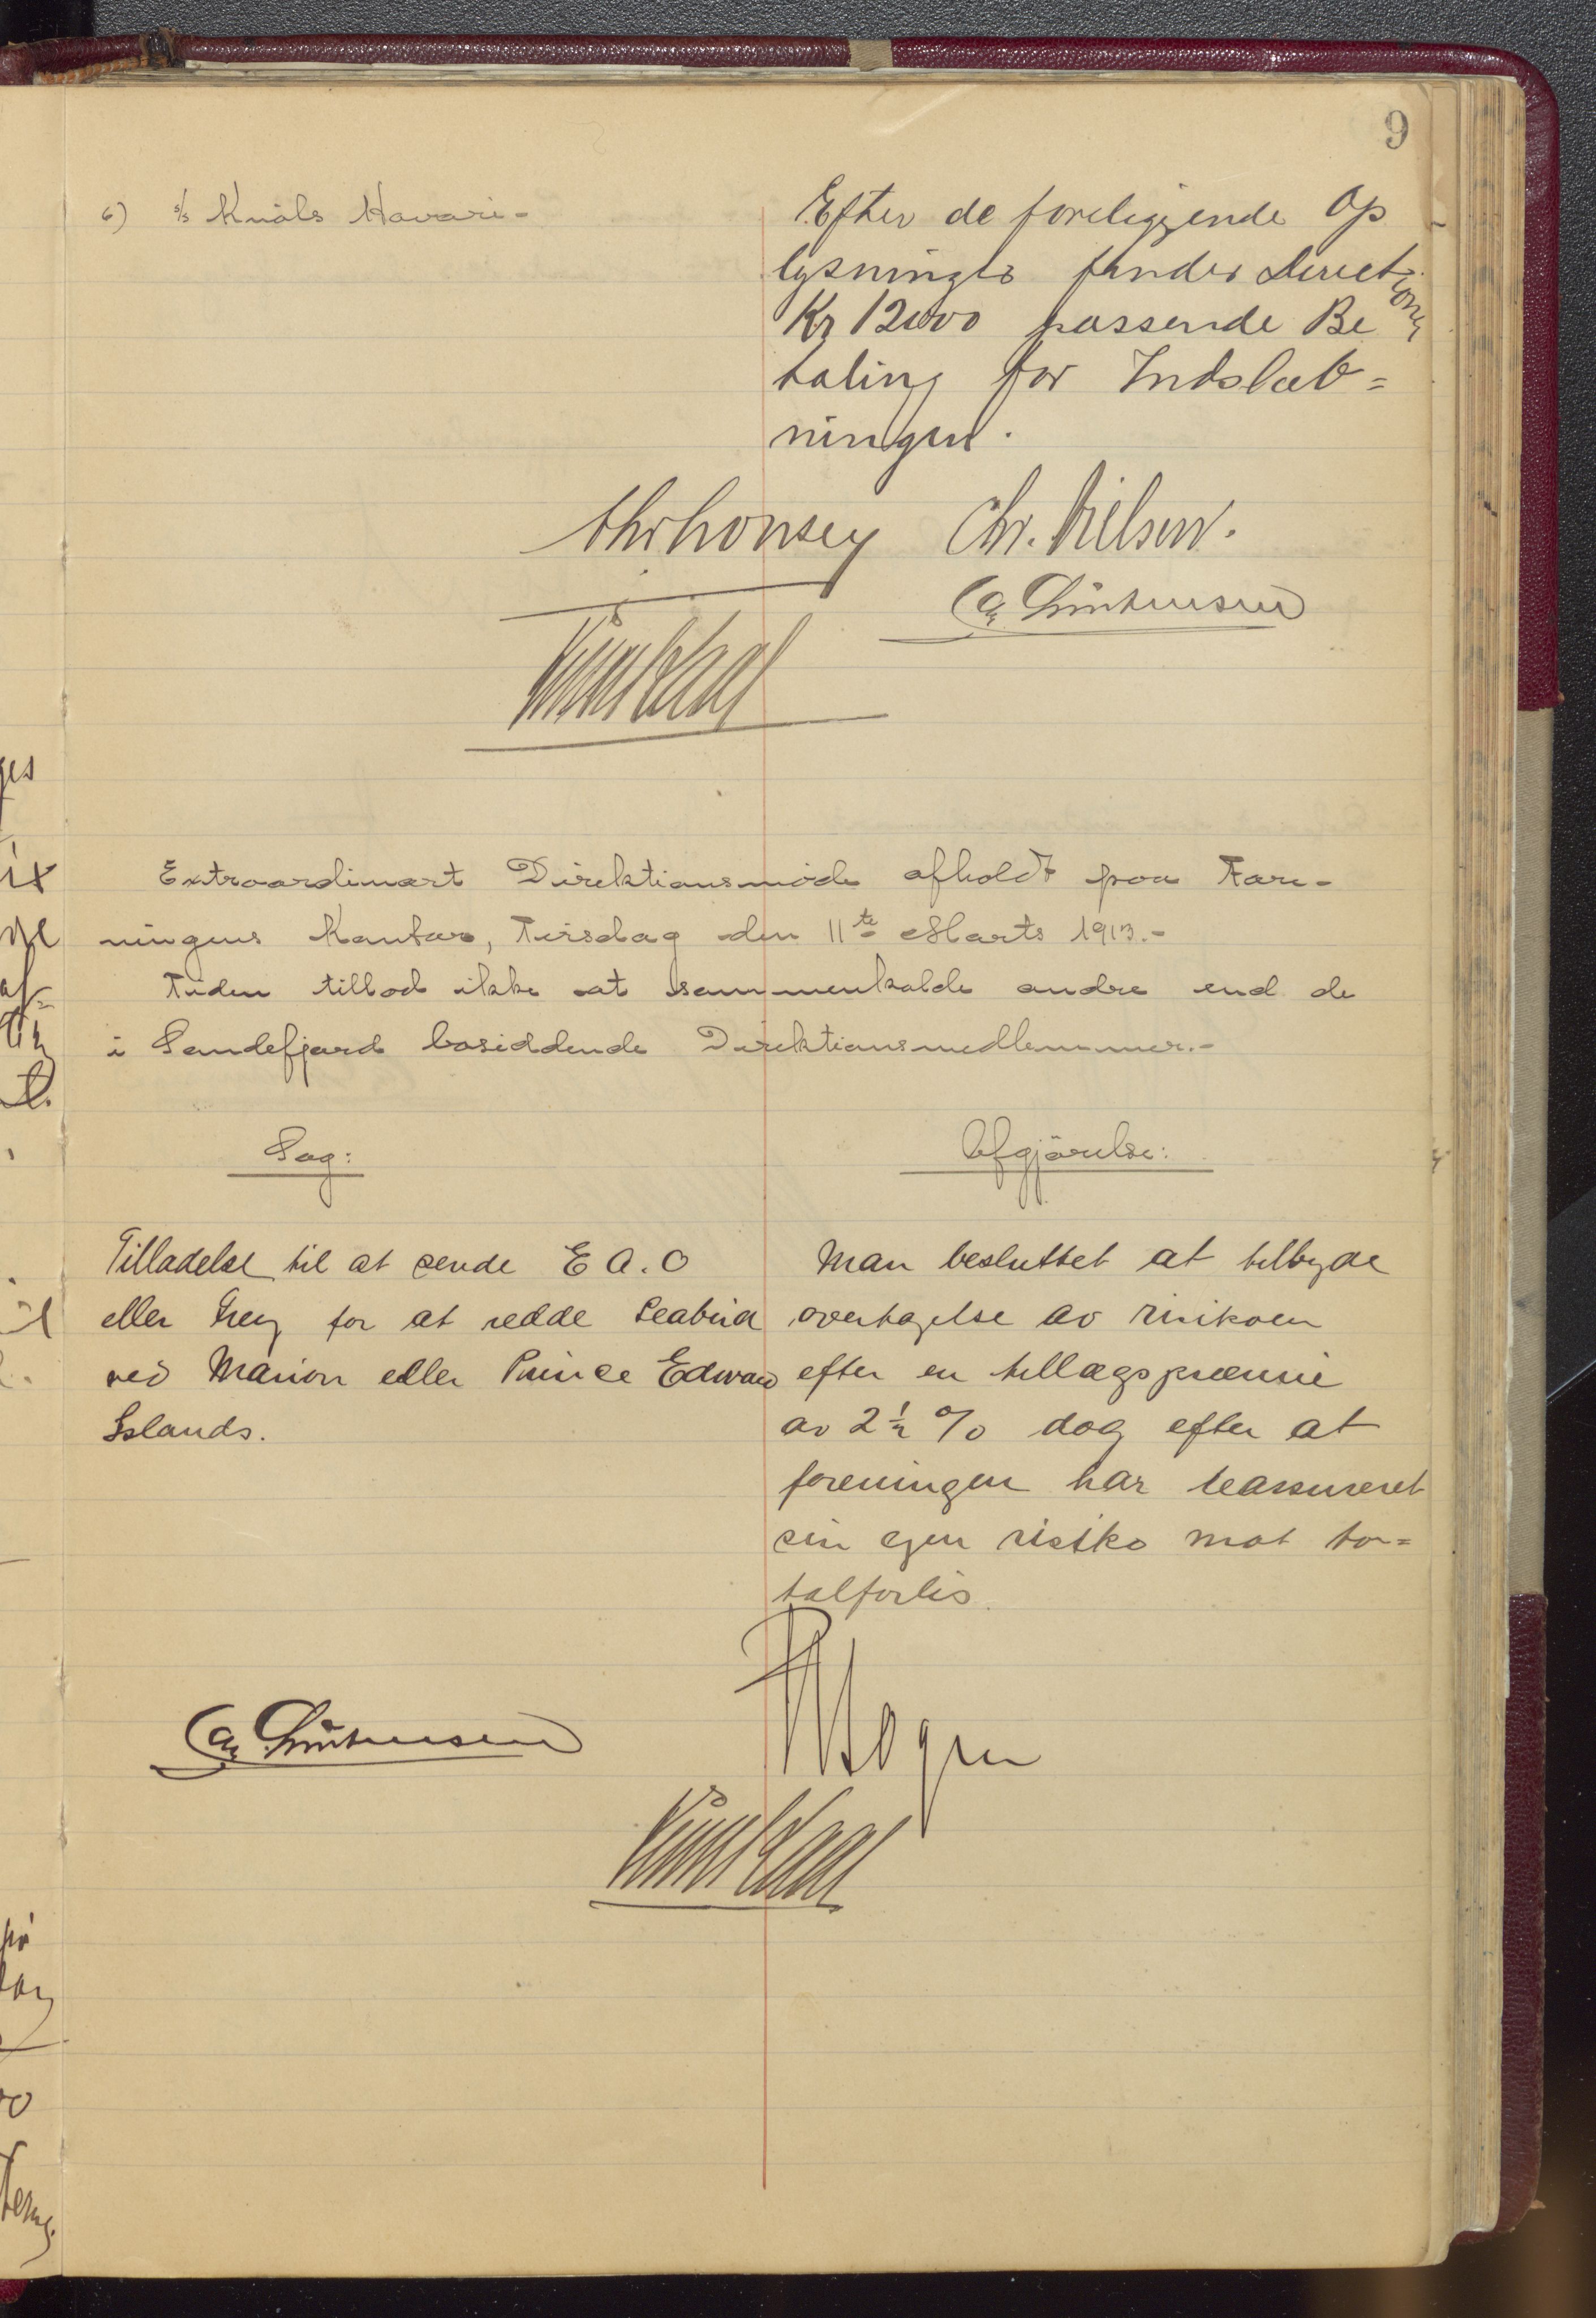 9
6) s/s Knöls Havari -
Efter de foreliggende Op
lysninger finder Direct
ionen
Kr 12000 passende Be
taling for Indslæb=
ningen.
Chr. Nilsen.
Extraordinært Direktionsmöde afholdt paa Fore-
ningens Kontor, Tirsdag den 11te Marts 1913.-
Tiden tillod ikke at sammenkalde andre end de
i Sandefjord bosiddende Direktionsmedlemmer.-
Sag:
Afgjörelse:
Tilladelse til at sende E A. O
eller Grey for at redde Seabird
ved Marion eller Prince Edward
Islands.
Man besluttet at tilbyde
overtagelse av risikoen
efter en tillægspræmie
av 2½ % dog efter at
foreningen har reassureret
sin egen risiko mot to=
talforlis.